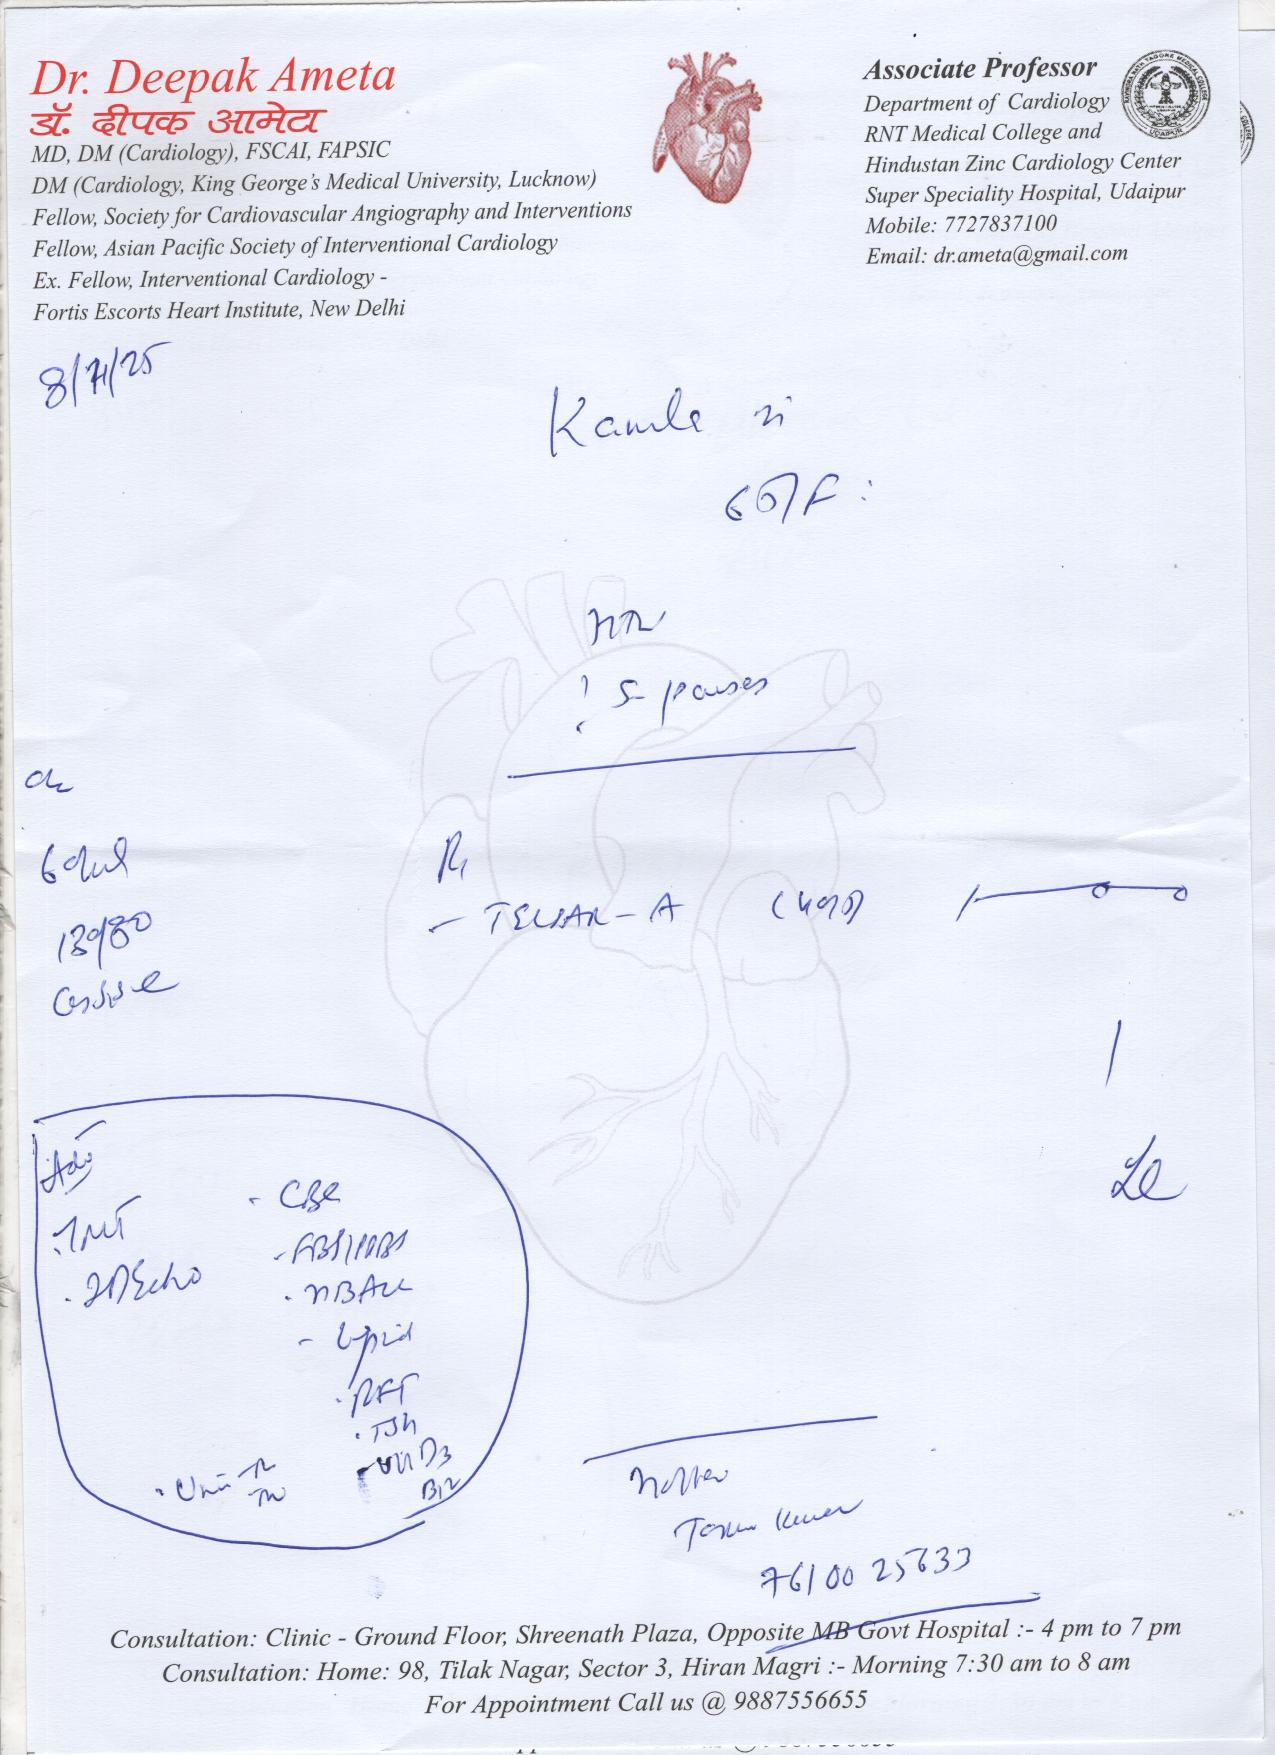 Dr. Deepak Ameta
डॉ. दीपक आमेटा
MD, DM (Cardiology), FSCAI, FAPSIC
DM (Cardiology, King George's Medical University, Lucknow)
Fellow, Society for Cardiovascular Angiography and Interventions
Fellow, Asian Pacific Society of Interventional Cardiology
Ex. Fellow, Interventional Cardiology -
Fortis Escorts Heart Institute, New Delhi
Associate Professor
Department of Cardiology
RNT Medical College and
Hindustan Zinc Cardiology Center
Super Speciality Hospital, Udaipur
Mobile: 7727837100
Email: dr.ameta@gmail.com
RAVINDRA NATH TAGORE MEDICAL COLLEGE
UDAIPUR
Kamla
HTN
? S- pauses
130/80
Rx
- TELSAR-A (40/5)
Adv
. TMT
. 2D Echo
- CBC
- FBS/PPBS
. HBA1c
- Lipid
. RFT
. TSH
- Vit D3
B12
. Urine
Holter
7610025633
Consultation: Clinic - Ground Floor, Shreenath Plaza, Opposite MB Govt Hospital :- 4 pm to 7 pm
Consultation: Home: 98, Tilak Nagar, Sector 3, Hiran Magri :- Morning 7:30 am to 8 am
For Appointment Call us @ 9887556655